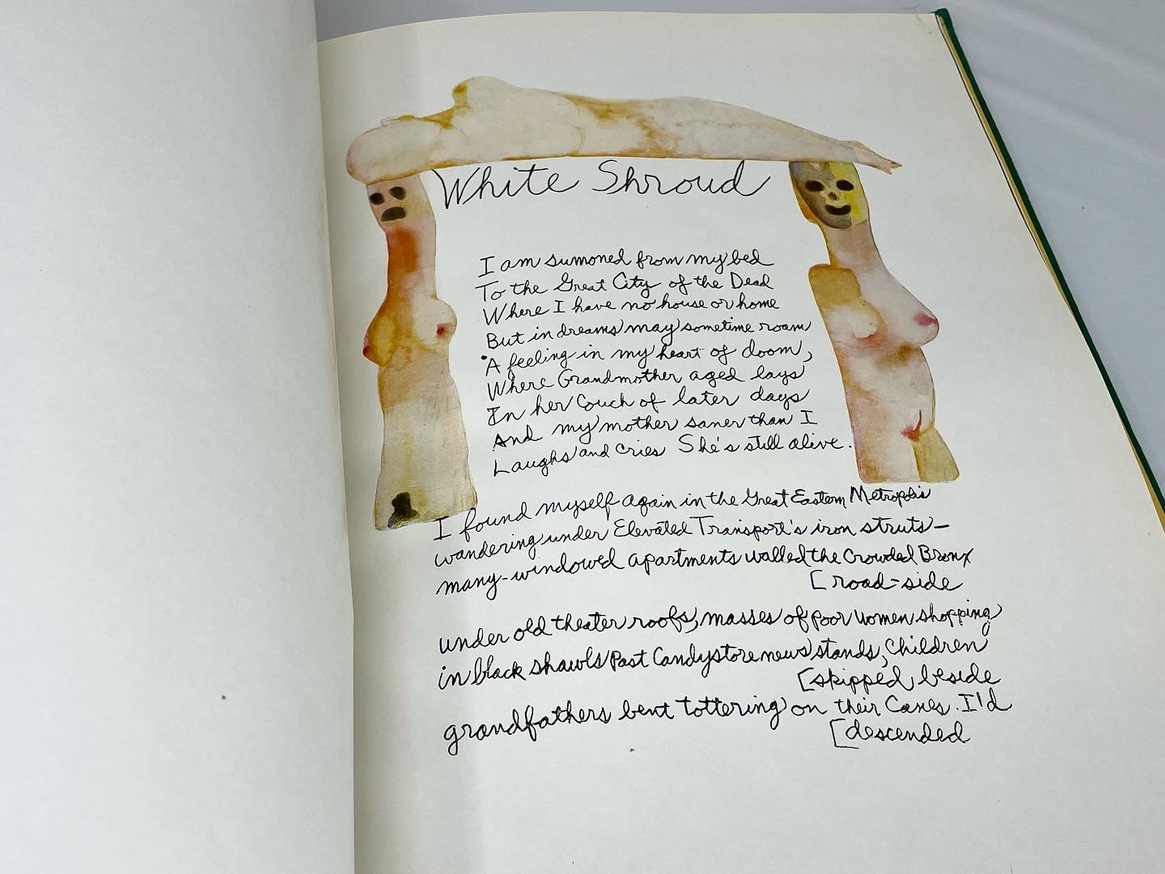 White Shroud
I am sumoned from my bed
To the Great City of the Dead
Where I have no house or home
But in dreams may sometime roam
A feeling in my heart of doom,
Where Grandmother aged lays
In her Couch of later days
And my mother saner than I
Laughs and cries She's still alive.
I found myself again in the Great Eastern Metropolis
wandering under Elevated Transport's iron struts—
many-windowed apartments walled the Crowded Bronx
[road-side
under old theater roofs, masses of poor women shopping
in black shawls Past Candystore news stands, Children
[skipped beside
grandfathers bent tottering on their Canes. I'd
[descended